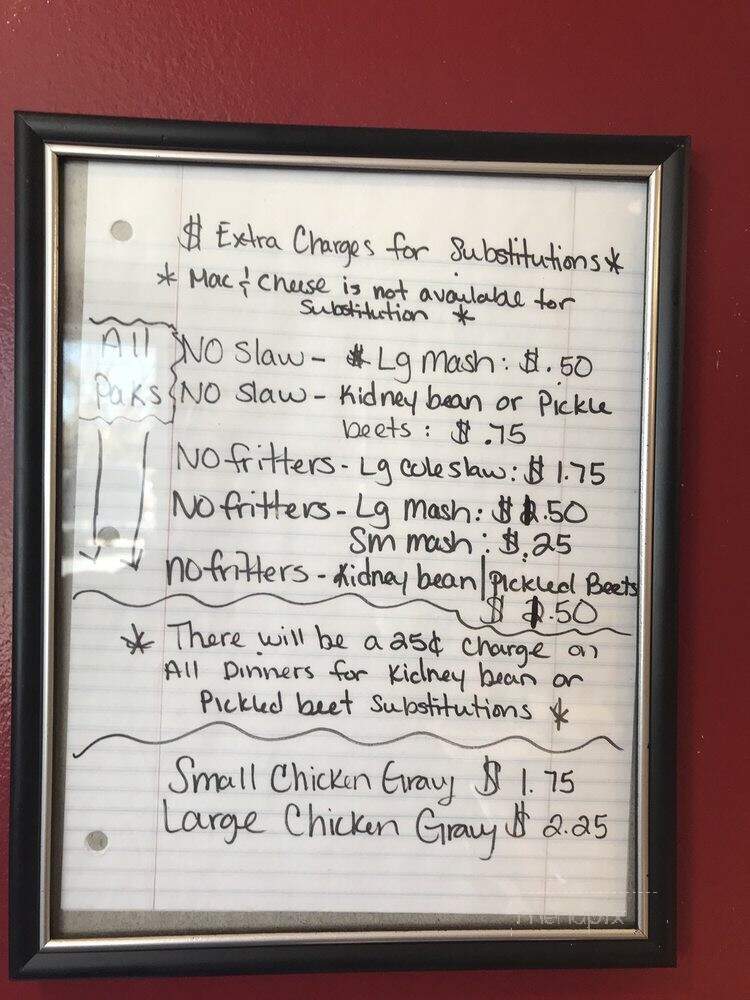 $ Extra Charges for Substitutions *
* Mac & Cheese is not available for
Substitution *
All
Paks
NO Slaw - Lg Mash: $.50
NO Slaw - Kidney bean or Pickle
beets: $ .75
NO fritters - Lg cole slaw: $ 1.75
NO fritters - Lg Mash: $ 1.50
Sm mash: $.25
no fritters - Kidney bean | Pickled Beets
$ 1.50
* There will be a 25¢ charge on
All Dinners for Kidney bean or
Pickled beet Substitutions *
Small Chicken Gravy $ 1.75
Large Chicken Gravy $ 2.25
menupix